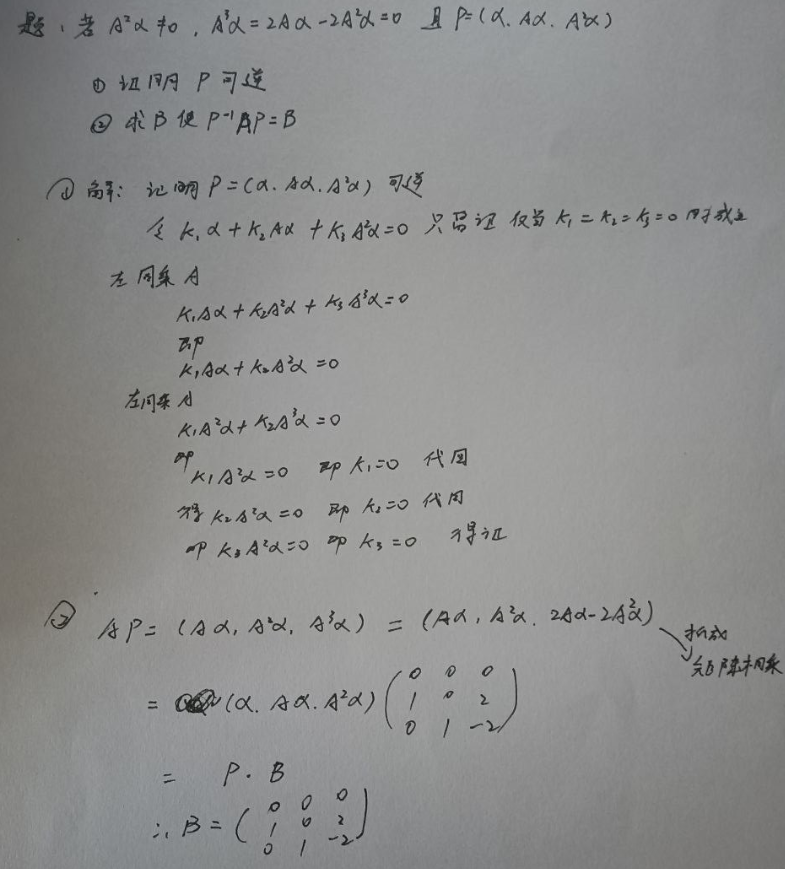 题、若 A²α ≠ 0 , A³α = 2Aα - 2A²α = 0 且 P = (α. Aα. A²α)
① 证明 P 可逆
② 求 B 使 P⁻¹AP = B
① 解: 证明 P = (α. Aα. A²α) 可逆
令 K₁α + K₂Aα + K₃A²α = 0 只需证 仅当 K₁ = K₂ = K₃ = 0 时成立
左同乘 A
K₁Aα + K₂A²α + K₃A³α = 0
即
K₁Aα + K₂A²α = 0
左同乘 A
K₁A²α + K₂A³α = 0
即 K₁A²α = 0 即 K₁ = 0 代回
得 K₂A²α = 0 即 K₂ = 0 代回
即 K₃A²α = 0 即 K₃ = 0 得证
② AP = (Aα, A²α, A³α) = (Aα, A²α. 2Aα - 2A²α)
拆成
矩阵相乘
= (α. Aα. A²α) ( 0 0 0
1 0 2
0 1 -2 )
= P · B
∴ B = ( 0 0 0
1 0 2
0 1 -2 )